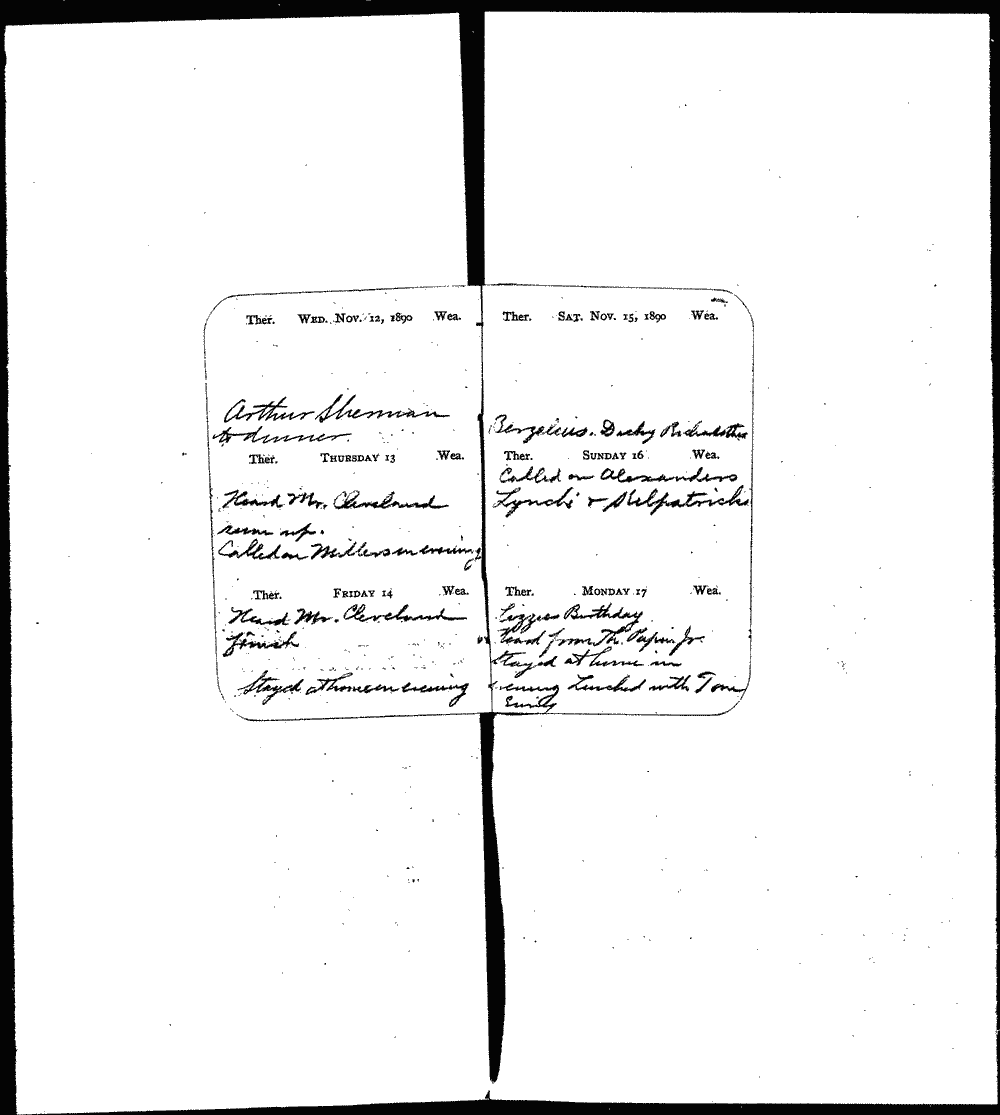 Ther. WED. NOV. 12, 1890 Wea.
Arthur Sherman
to dinner.
Ther. THURSDAY 13 Wea.
Heard Mr. Cleveland
sum up.
Called on Millers in evening
Ther. FRIDAY 14 Wea.
Heard Mr. Cleveland
finish
Stayed at home in evening
Ther. SAT. NOV. 15, 1890 Wea.
Berzelius.
Ther. SUNDAY 16 Wea.
Called on Alexanders
Lynchs & Kilpatricks
Ther. MONDAY 17 Wea.
Lizzies Birthday
Heard from Th. Papin Jr.
Stayed at home in
evening Lunched with Tom
Emily